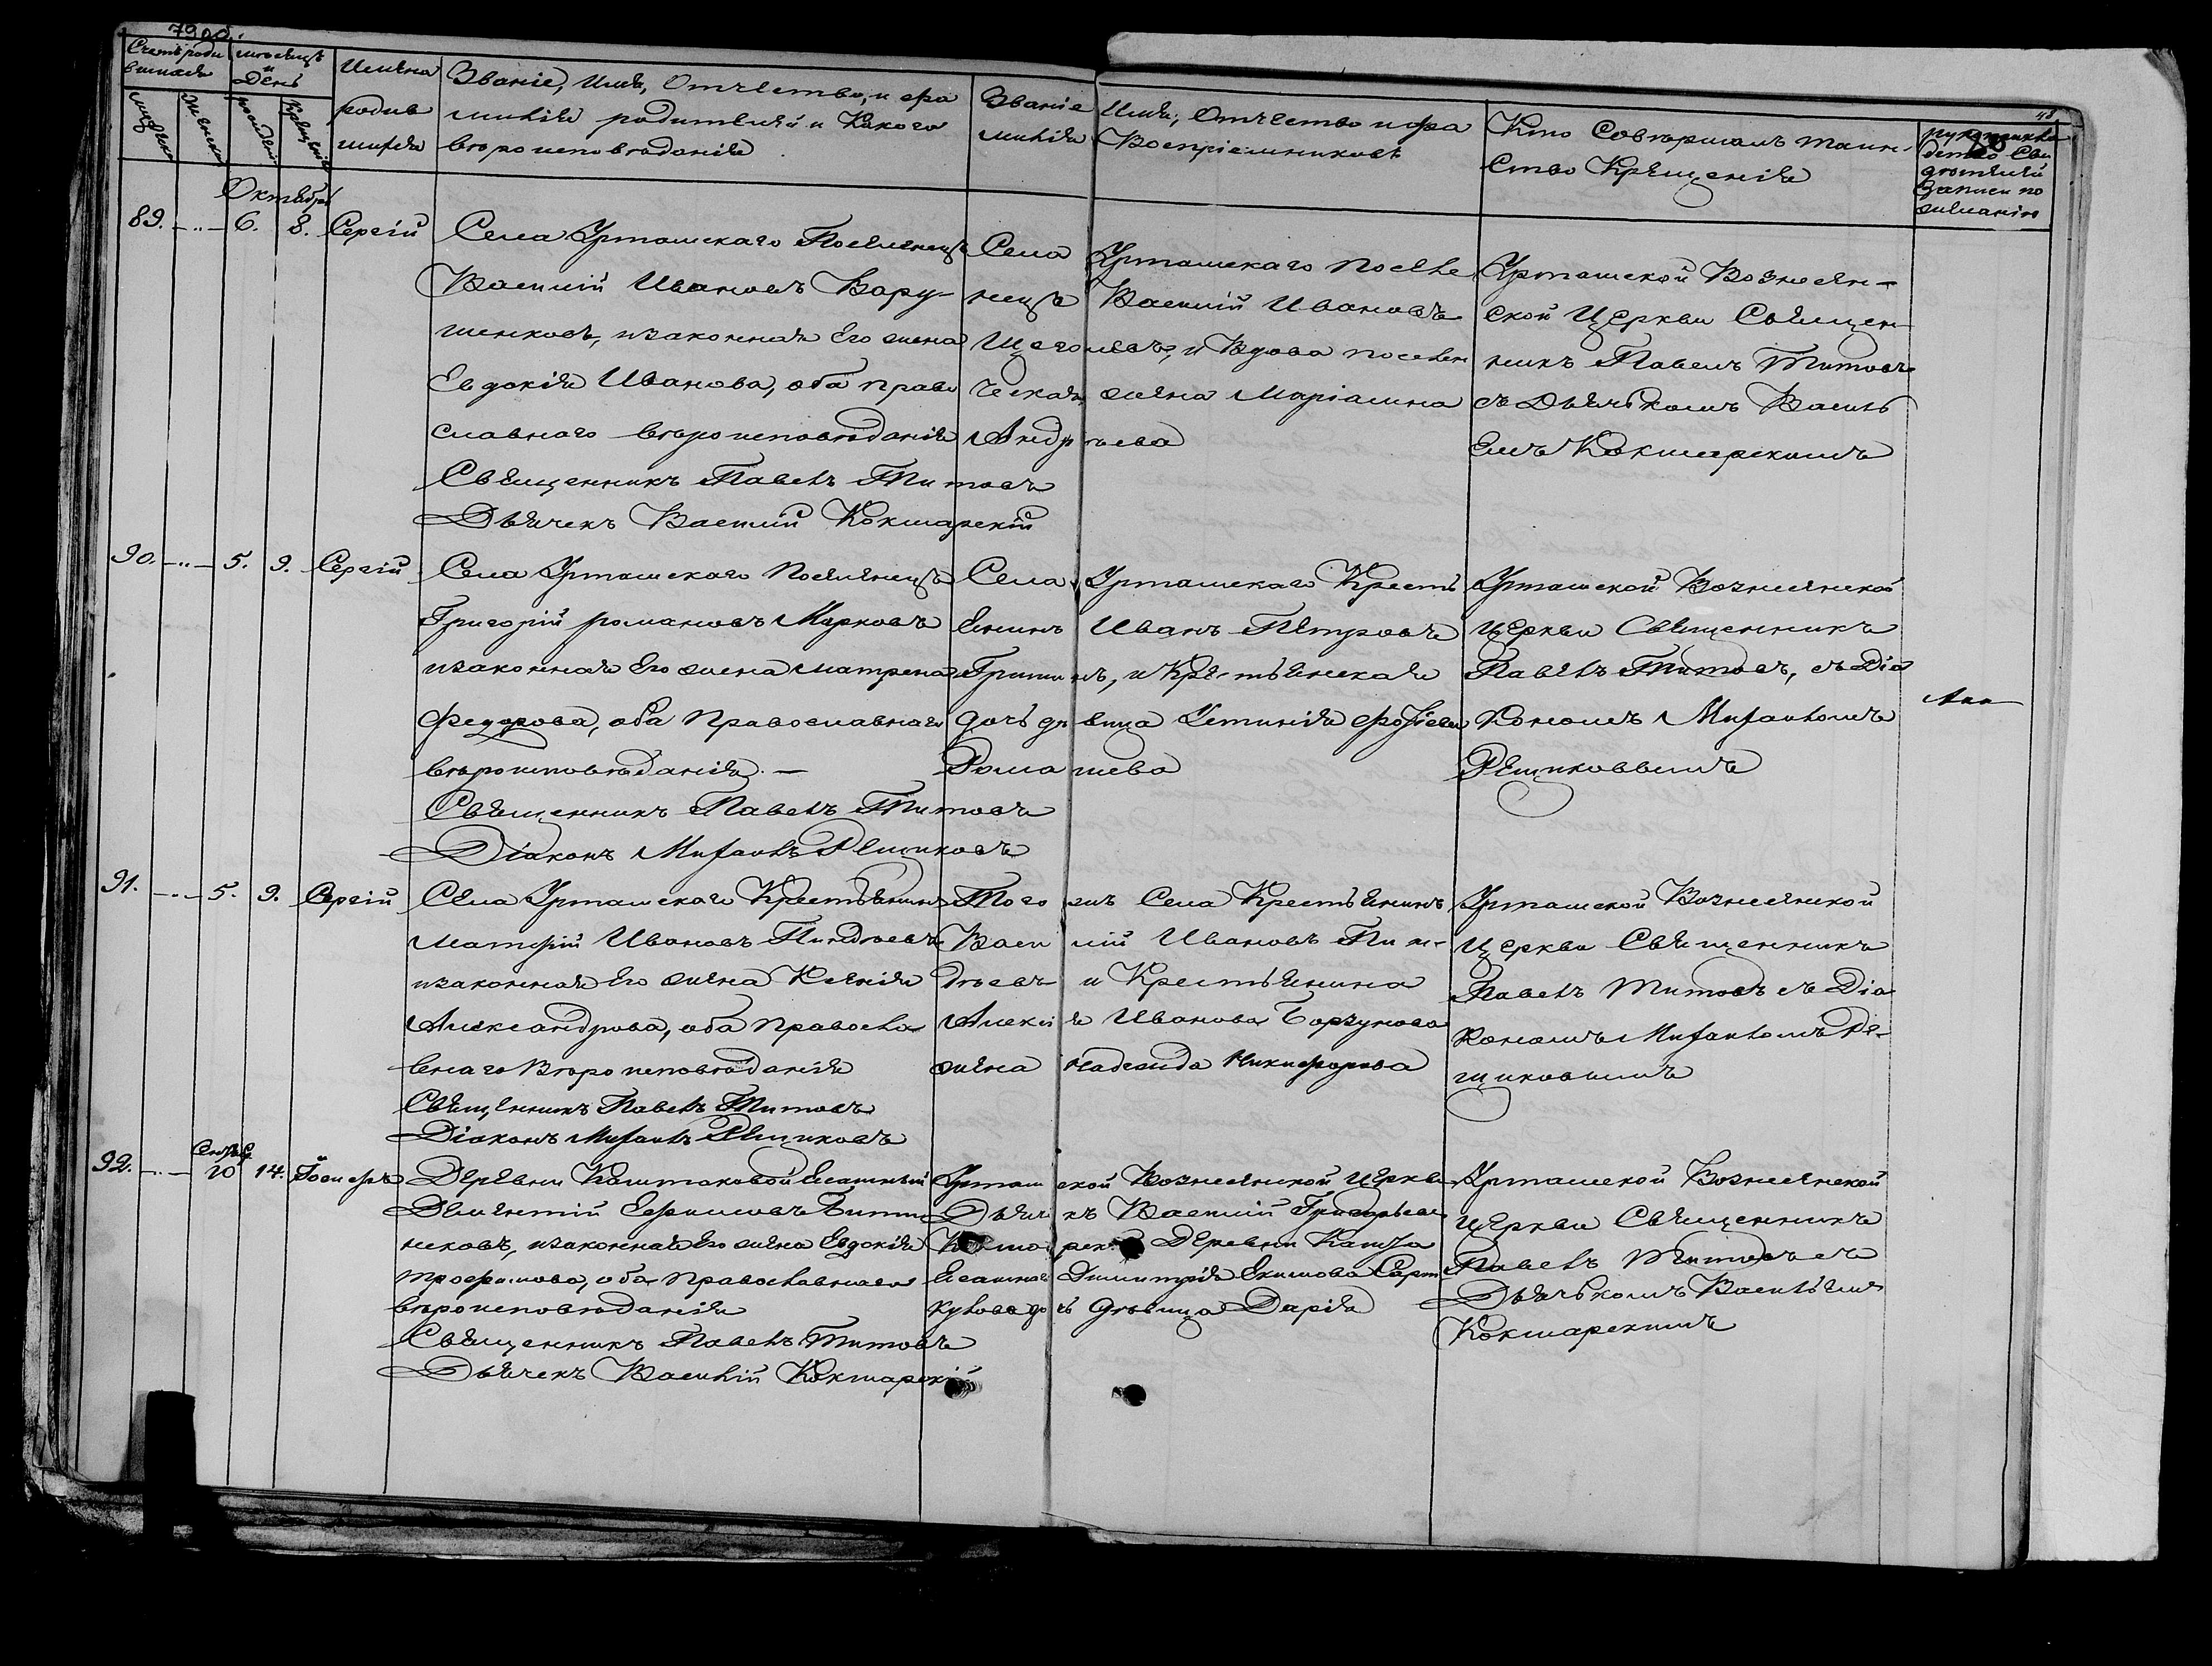 7900.
48
Счетъ роди
вшихся
мѣсяцъ
и
День
Имѣна
родив
шихся
Званіе, Имя, Отчество, и фа
милія родителей и Какого
вѣроисповѣданія
Званіе Имя, Отчество и фа
милія Воспріемниковъ
Кто Совершалъ таин-
ство Крещенія
рукоприкла
дство Сви
дѣтелей
Записи по
желанію
Октября
89. 6. 8. Сергій
Села Урташскаго Поселенецъ
Василій Ивановъ Вору-
шенковъ, изаконная Его жена
Евдокія Иванова, оба право
славнаго вѣроисповѣданія
Священникъ Павелъ Титовъ
Дьячекъ Василій Кокшарскій
Села Урташскаго поселе
нецъ Василій Ивановъ
Щеголевъ, и Вдова поселен
ческая жена Маріамна
Андрѣева
Урташской Вознесен-
ской Церкви Священ
никъ Павелъ Титовъ
съ Дьячькомъ Василь
емъ Кокшарскимъ
90. 5. 9. Сергій
Села Урташскаго Поселенецъ
Григорій романовъ Марковъ
изаконная Его жена матрена
Федорова, оба Православнаго
вѣроисповѣданія. —
Священникъ Павелъ Титовъ
Діаконъ Михаилъ Рещиковъ
Села Урташскаго Кресть
янинъ Иванъ Петровъ
Гришинъ, и Крестьянская
дочь дѣвица Устинія
Ромашева
Урташской Вознесенской
церкви Священникъ
Павелъ Титовъ, съ Діа
кономъ Михаиломъ
Рещиковымъ
91. 5. 9. Сергій
Села Урташскаго Крестьянинъ
Матфій Ивановъ Пиндѣевъ
изаконная Его жена Ксенія
Александрова, оба Правосла
внаго Вѣроисповѣданія
Священникъ Павелъ Титовъ
Діаконъ Михаилъ Рещиковъ
Того жъ Села Крестьянинъ
Василій Ивановъ Пин-
дѣевъ и Крестьянина
Алексія Иванова Борзунова
жена Надежда Никифорова
Урташской Вознесенской
Церкви Священникъ
Павелъ Титовъ съ Діа
кономъ Михаиломъ Ре-
щиковымъ
92. 20 14.
Деревни Каштаковой Ясашный
Деменьтій Ефимовъ
изаконная Его жена Евдокія
Трофимова, оба Православнаго
вѣроисповѣданія
Священникъ Павелъ Титовъ
Дьячекъ Василій Кокшарскій
Урташской Вознесенской церкви
Дьячекъ Василій Григорьевъ
Деревни
Ясашнаго Димитрія Екимова
дочь дѣвица Дарія
Урташской Вознесенской
церкви Священникъ
Павелъ Титовъ съ
Дьячькомъ Васильемъ
Кокшарскимъ